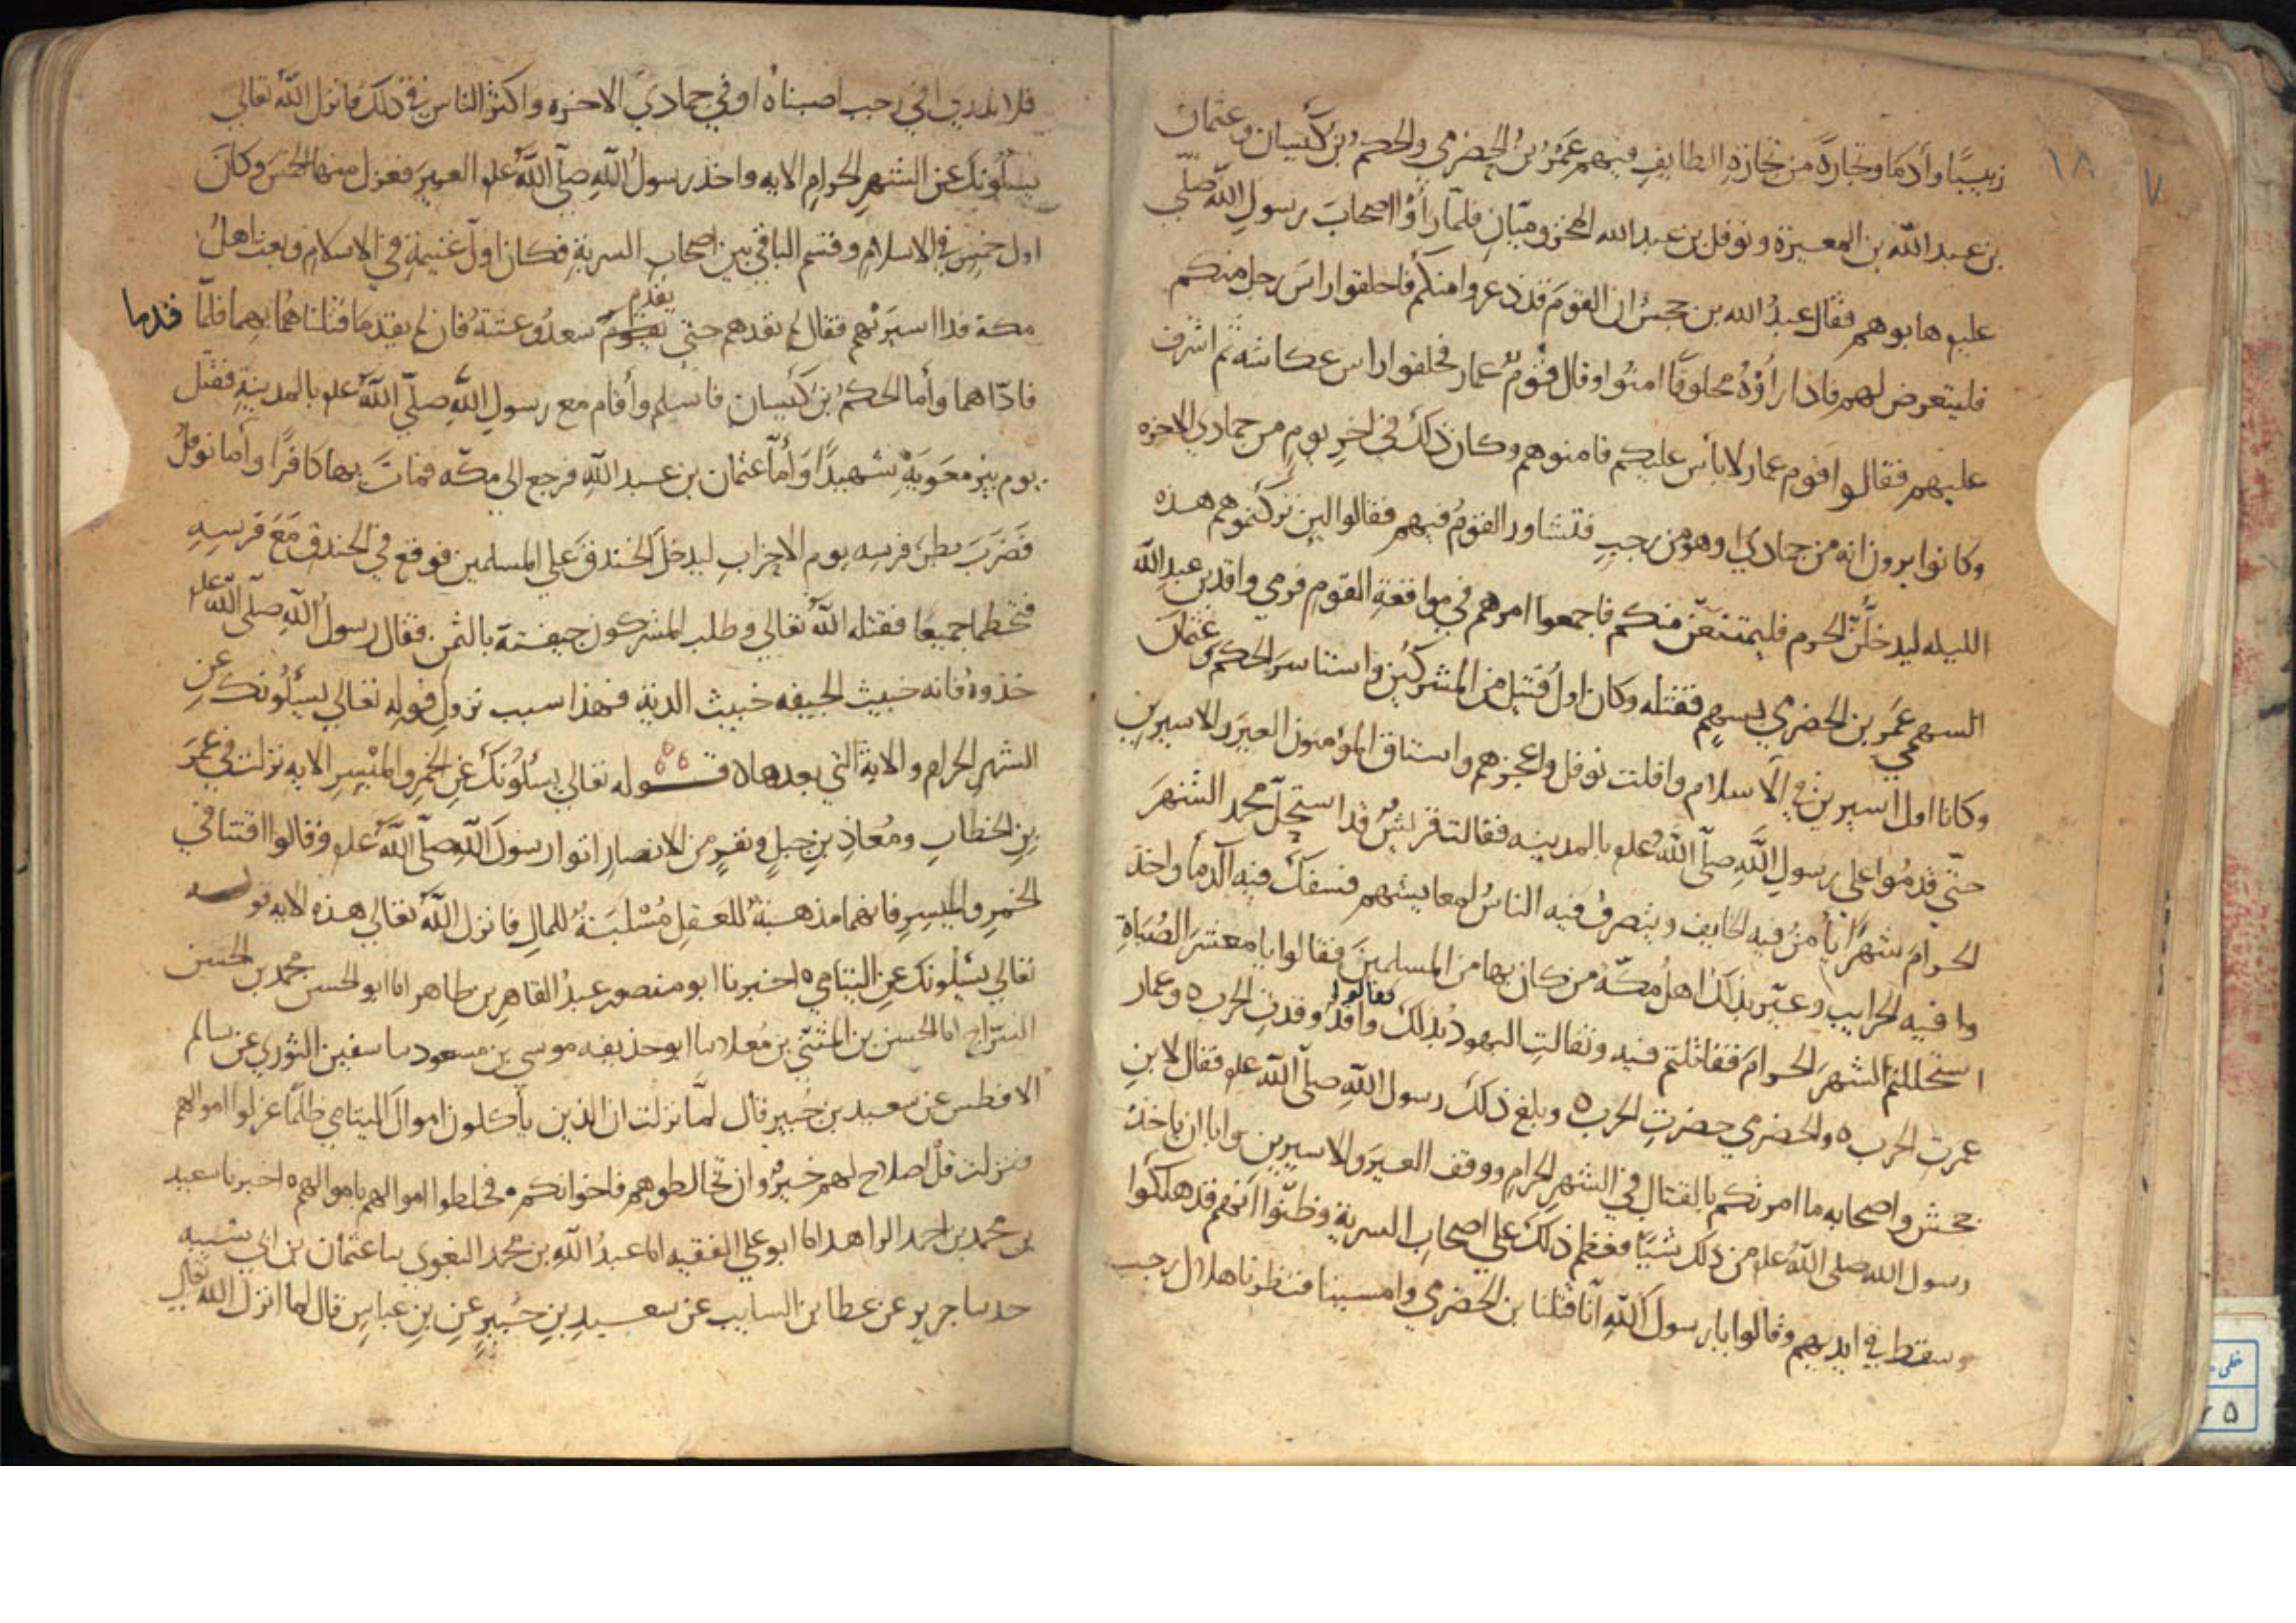 ١٨ ٧
زبيبًا وأدما وتجارةً من تجارة الطايف فيهم عَمْرُ بنُ الحضرمي والحكمُ بن كَيْسان وعثمان
بن عبد الله بن المغيرة ونوفل بن عبد الله المخزوميّانِ فلمّا رأوْا اصحابَ رسولِ اللّه صلّى
عليه هابوهم فقال عبدُ الله بن جحشٍ ان القومَ قد ذعروا منكم فاحلقوا راسَ رجلٍ منكم
فليتعرض لهم فاذا راَوْهُ محلوقًا امنُوا وقال قومٌ عمار فحلقوا راس عكاشه ثم اشرف
عليهم فقالوا قوم عمار لا بأس عليكم فامنوهم وكان ذلك في اخرِ يومٍ من جمادي الاخره
وكانوا يرون انه من جمادي او هو من رجبٍ فتشاور القومُ فيهم فقالوا لين تركتموهم هذه
الليله ليدخلُنَّ الحرم فليمتنعُنّ منكم فاجمعوا امرهم في مواقعةِ القومِ فرمي واقد بن عبدِ اللّه
السهمي عمَر بن الحضرمي بسهمٍ فقتله وكان اولُ قتيلٍ من المشركين واستاسرَ الحكم وعثمان
وكانا اول اسيرين في الاسلام وافلت نوفل واعجزهم واستاق المؤمنون العيرَ والاسيرينِ
حتّي قدمُوا علي رسولِ اللّه صلّي اللّه علم بالمدينه فقالت قريشُ قد استحلّ محمد الشهرَ
الحرامَ شهرًا يأمنُ فيه الخايف ويتصرفُ فيه الناسُ لمعايشهم فسفكَ فيه الدمأ واخذ
وا فيه الحرايب وعيّر بذلك اهلُ مكّة من كان بها من المسلمينَ فقالوا يا معشرَ الصُبَاةِ
استحللتم الشهرَ الحرامَ فقاتلتم فيه وتفالتِ اليهود بذلك فقالوا واقد وقدتِ الحرب ٥ وعمار
عمرت الحرب ٥ والحضرمي حضرتِ الحرب ٥ وبلغ ذلكَ رسول اللّه صلّي اللّه علم فقال لابنِ
جحش واصحابه ما امرتكم بالقتال في الشهرِ الحرامِ ووقف العيرَ والاسيرين وابا ان ياخذ
رسول الله صلى اللّه علم من ذلك شيًا فعظم ذلكَ علي اصحابِ السرية وظنّوا انهم قد هلكوا
وسقط في ايديهم وقالوا يا رسولَ اللّه انّا قتلنا بن الحضرمي وامسينا فنظرنا هلال رجب
فلا ندري افي رجب اصبناه او في جمادي الاخره واكثر الناس في ذلك فانزل اللّه تعالي
يسئلونكَ عن الشهرِ الحرامِ الايه واخذ رسولُ اللّهِ صلّي اللّه علم العيرَ فعزل منها الخمسَ وكانَ
اول خمسٍ في الاسلامِ وقسم الباقي بين اصحابِ السريةِ فكان اولَ غنيمةٍ في الاسلامِ وبعث اهلُ
مكة فدا اسيرَيْهم فقال لم نفدهم حتي يقدم سعدُ وعتبةُ فان لم يقدما قتلناهُما بهما فلمّا قدما
فاداهما وأما الحكمُ بنُ كَيْسان فاسلم وأقام مع رسولِ اللّه صلّي اللّه علم بالمدينةِ فقتل
يوم بير معَوَيةَ شهيدًا وَأَمّا عثمان بن عبد اللّهِ فرجع الي مكّه فماتَ بها كافرًا وأما نوفلٌ
فضَربَ بطنَ فرسِه يوم الاحزابِ ليدخلَ الخندقَ علي المسلمين فوقع في الخندق مَعَ فرسِهِ
فتحطما جميعًا فقتله اللّه تعالي وطلب المشركون جيفته بالثمنِ فقال رسول اللّهِ صلّي اللّه علم
خذوهُ فانه خبيث الجيفه خبيث الدية فهذا سبب نزولِ قولِه تعالي يسئلونك عنِ
الشهرِ الحرامِ والاية التي بعدها ٥ قــوله تعالي يسئلونكَ عنِ الخمرِ والميْسرِ الايه نزلت في عمَرَ
بنِ الخطابِ ومُعاذِ بنِ جبلٍ ونفرٍ من الانصارِ اتوا رسولَ اللّهِ صلّي اللّه علم وقالوا افتنا في
الخمرِ والميسِرِ فانهما مذهبةٌ للعقلِ مُسْلبَةٌ للمالِ فانزل اللّه تعالي هذه الايه قوله
تعالي يسئلونك عنِ اليتامي ٥ اخبرنا ابو منصور عبدُ القاهرِ بن طاهر انا ابو الحسن محمد بن الحسن
السرّاج انا الحسن بن المثنّي بن مُعاد نا ابو حذيفه موسي بن مسعود نا سفين الثوري عن سالم
الافطس عن سعيد بن جُبيرٍ قال لمّا نزلت ان الذين يأكلون اموالَ اليتامي ظلمًا عزلوا اموالهم
فنزلت قلْ اصلاح لهم خيرٌ وان تخالطوهم فاخوانكم فخلطوا اموالهم باموالهم ٥ اخبرنا سعيد
بن محمد بن احمد الزاهد انا ابو علي الفقيه انا عبدُ اللّه بن محمد البغوي نا عثمان بن ابي شيبه
حدنا جرير عن عطا بن السايب عن سعيدِ بنِ جُبيرٍ عنِ بنِ عباسٍ قال لما انزل اللّه تعالي